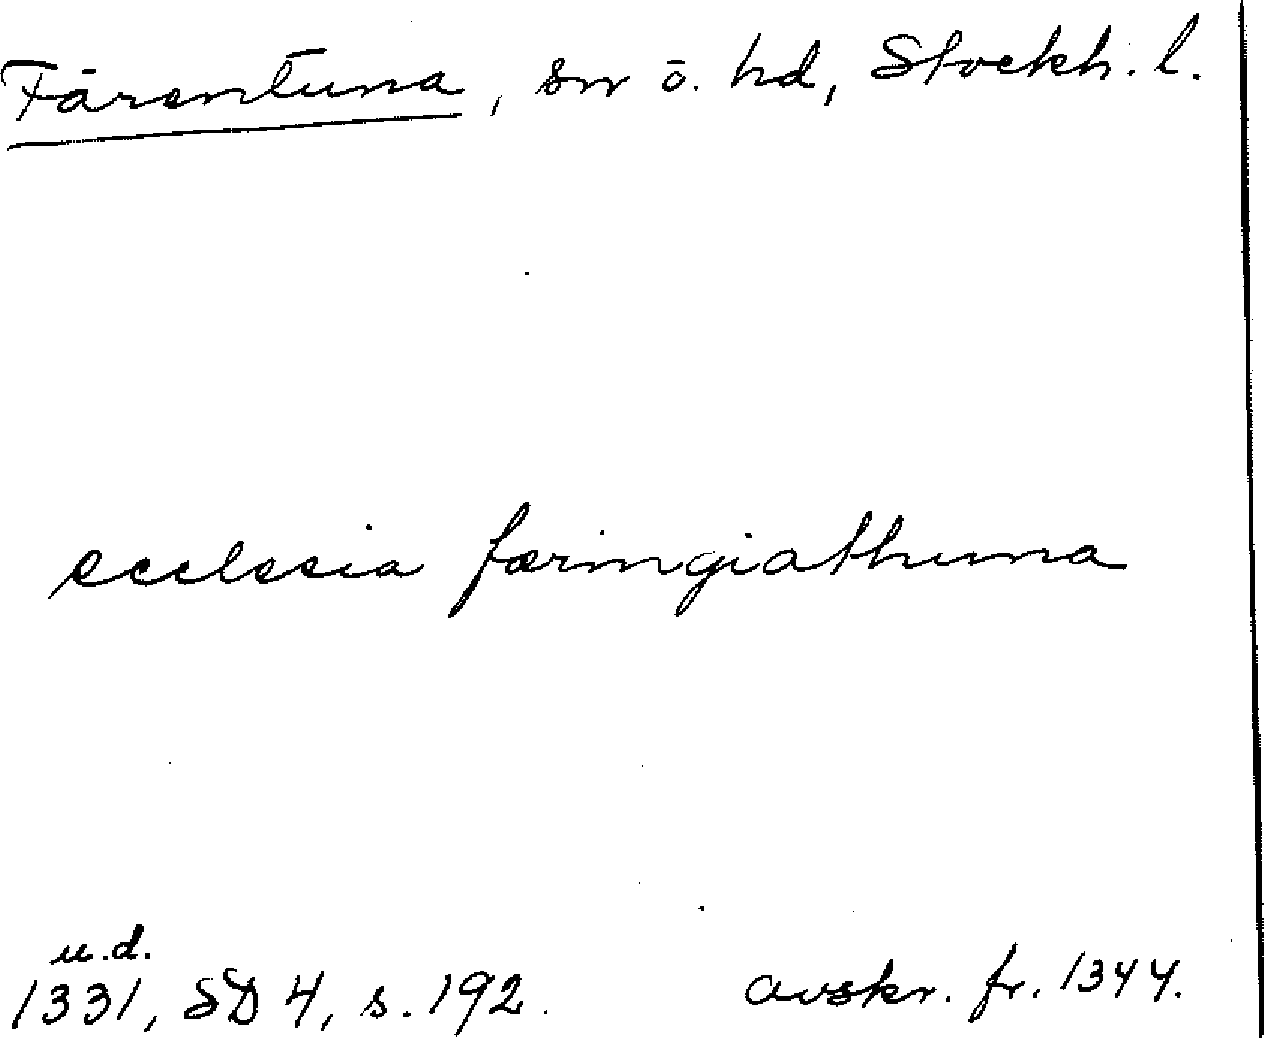 Färentuna, sn o. hd, Stockh. l.
ecclesia færingiathuna
u.d.
1331, SD 4, s. 192. avskr. fr. 1344.